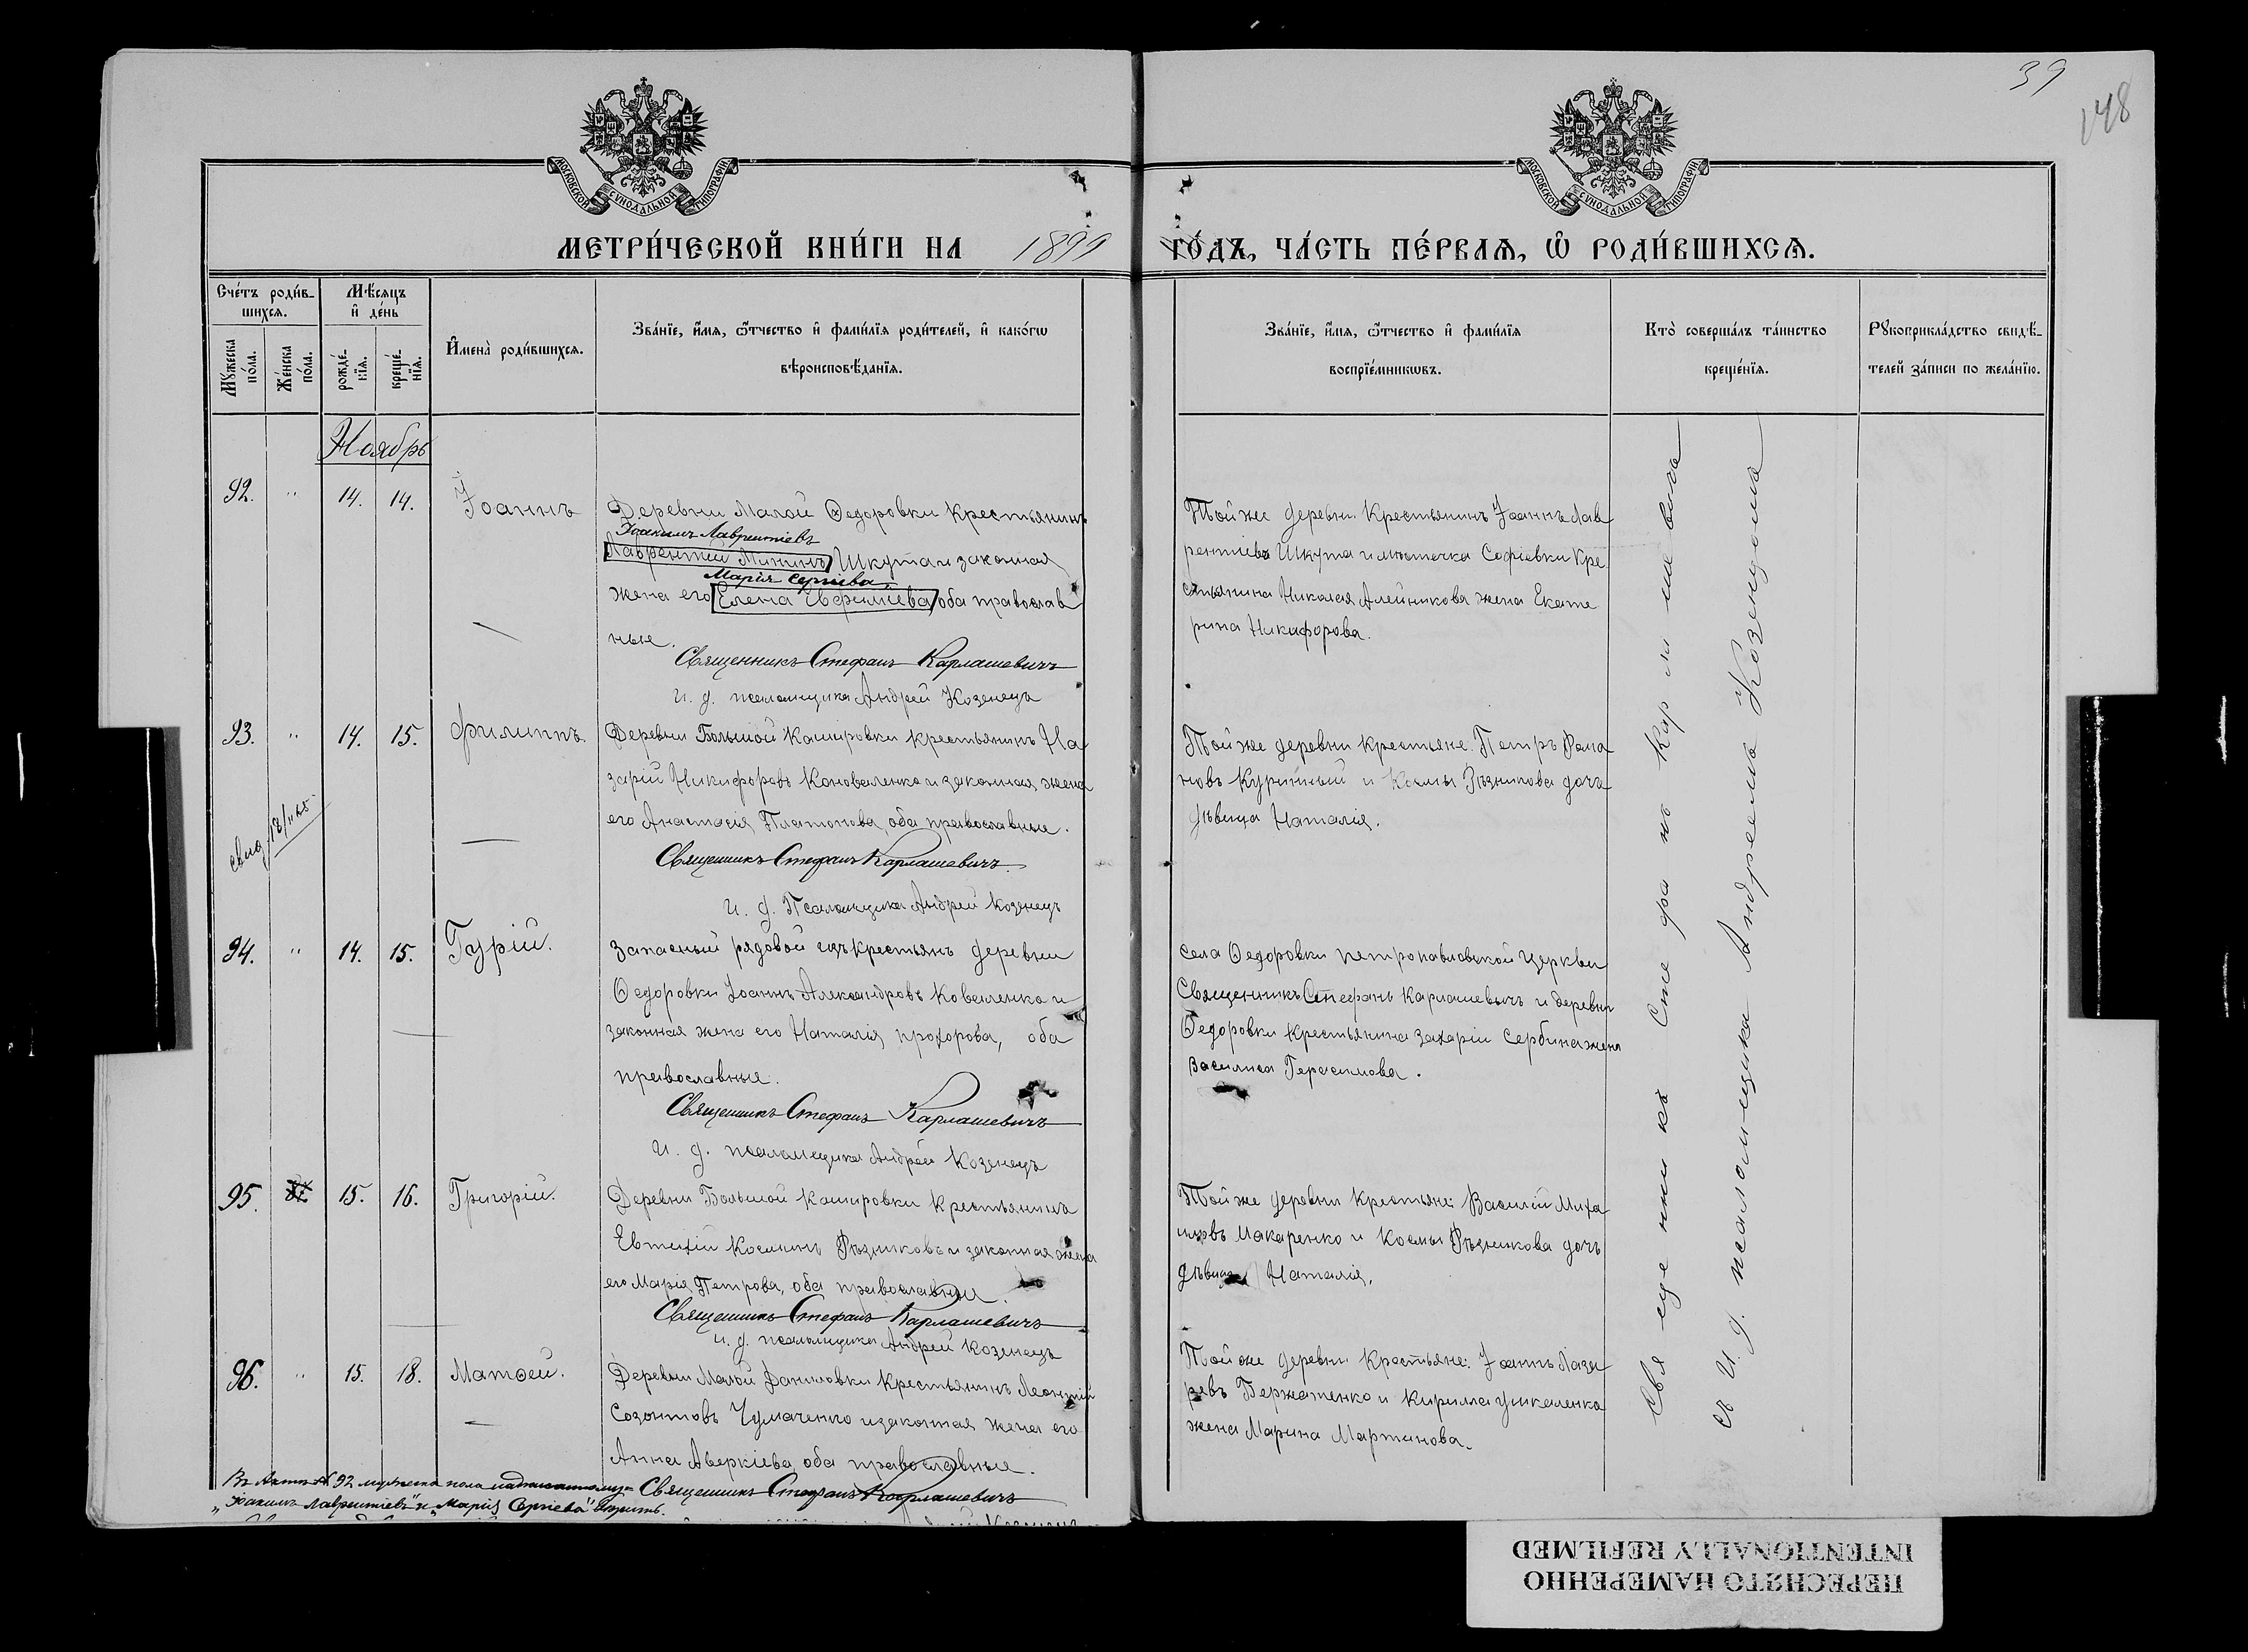 39
148
МОСКОВСКОЙ СѴНОДАЛЬНОЙ ТИПОГРАФІИ
МОСКОВСКОЙ СѴНОДАЛЬНОЙ ТИПОГРАФІИ
МЕТРИ́ЧЕСКОЙ КНИ́ГИ НА 1899 ГО́ДЪ, ЧА́СТЬ ПЕ́РВАѦ, Ѡ РОДИ́ВШИХСѦ.
Сче́тъ роди́в-
шихсѧ.
Мѣ́сѧцъ
и҆ де́нь
Мꙋ́жеска
по́ла.
Же́нска
по́ла.
рожде́-
нїѧ.
креще́-
нїѧ.
И҆мена̀ роди́вшихсѧ.
Зва́нїе, и҆́мѧ, ѻ҆́тчество и҆ фами́лїѧ роди́телей, и҆ како́гѡ
вѣроисповѣ́данїѧ.
Зва́нїе, и҆́мѧ, ѻ҆́тчество и҆ фами́лїѧ
воспрїе́мникѡвъ.
Кто̀ соверша́лъ та́инство
креще́нїѧ.
Рꙋкоприкла́дство свидѣ́-
телей за́писи по жела́нїю.
Ноябрь
92. " 14. 14. Іоаннъ
Деревни Малой Ѳедоровки крестьянинъ
Іоакимъ Лаврентіевъ
Лаврентій Мининъ Шкута и законная
Марія Сергіева
жена его Елена Евфиміева оба православ
ные.
Священникъ Стефанъ Карлашевичъ
и. д. псаломщика Андрей Козенецъ
Той же деревни крестьянинъ Іоаннъ Лав
рентіевъ Шкута и мѣстечка Софіевки кре
стьянина Николая Алейникова жена Екате
рина Никифорова.
93. " 14. 15. Филиппъ.
Деревни Большой Кашировки крестьянинъ На
зарій Никифоровъ Коноваленко и законная жена
его Анастасія Платонова, оба православные.
Священникъ Стефанъ Карлашевичъ.
и. д. Псаломщика Андрей Козенецъ
Той же деревни крестьяне: Петръ Рома
новъ Куринный и Космы Рѣзникова дочь
дѣвица Наталія.
94. " 14. 15. Гурій.
Запасный рядовой изъ крестьянъ деревни
Ѳедоровки Іоаннъ Александровъ Коваленко и
законная жена его Наталія Прохорова, оба
православные.
Священникъ Стефанъ Карлашевичъ
и. д. псаломщика Андрей Козенецъ
села Ѳедоровки Петропавловской церкви
Священникъ Стефанъ Карлашевичъ и деревни
Ѳедоровки крестьянина Захаріи Сербина жена
Василиса Герасимова.
95. 15. 16. Григорій.
Деревни Большой Кашировки крестьянинъ
Евтихій Косминъ Рѣзниковъ и законная жена
его Марія Петрова, оба православные.
Священникъ Стефанъ Карлашевичъ
и. д. псаломщика Андрей Козенецъ
Той же деревни крестьяне: Василій Миха
иловъ Макаренко и Космы Рѣзникова дочь
дѣвица Наталія.
96. " 15. 18. Матѳей.
Деревни Малой Даниловки крестьянинъ Леонтій
Созонтовъ Чумаченко и законная жена его
Анна Аверкіева, оба православные.
Священникъ Стефанъ Карлашевичъ
Той же деревни крестьяне: Іоаннъ Лаза
ревъ Бержатенко и Кирилла Ушкаленка
жена Марина Мартинова.
Въ актѣ № 92 мужеска пола надписанному
„Іоакимъ Лаврентіевъ" и „Марія Сергіева" вѣрить.
Священникъ Стефанъ Карлашевичъ
съ и. д. псаломщика Андреемъ Козенцомъ
ПЕРЕСНЯТО НАМЕРЕННО
INTENTIONALLY REFILMED